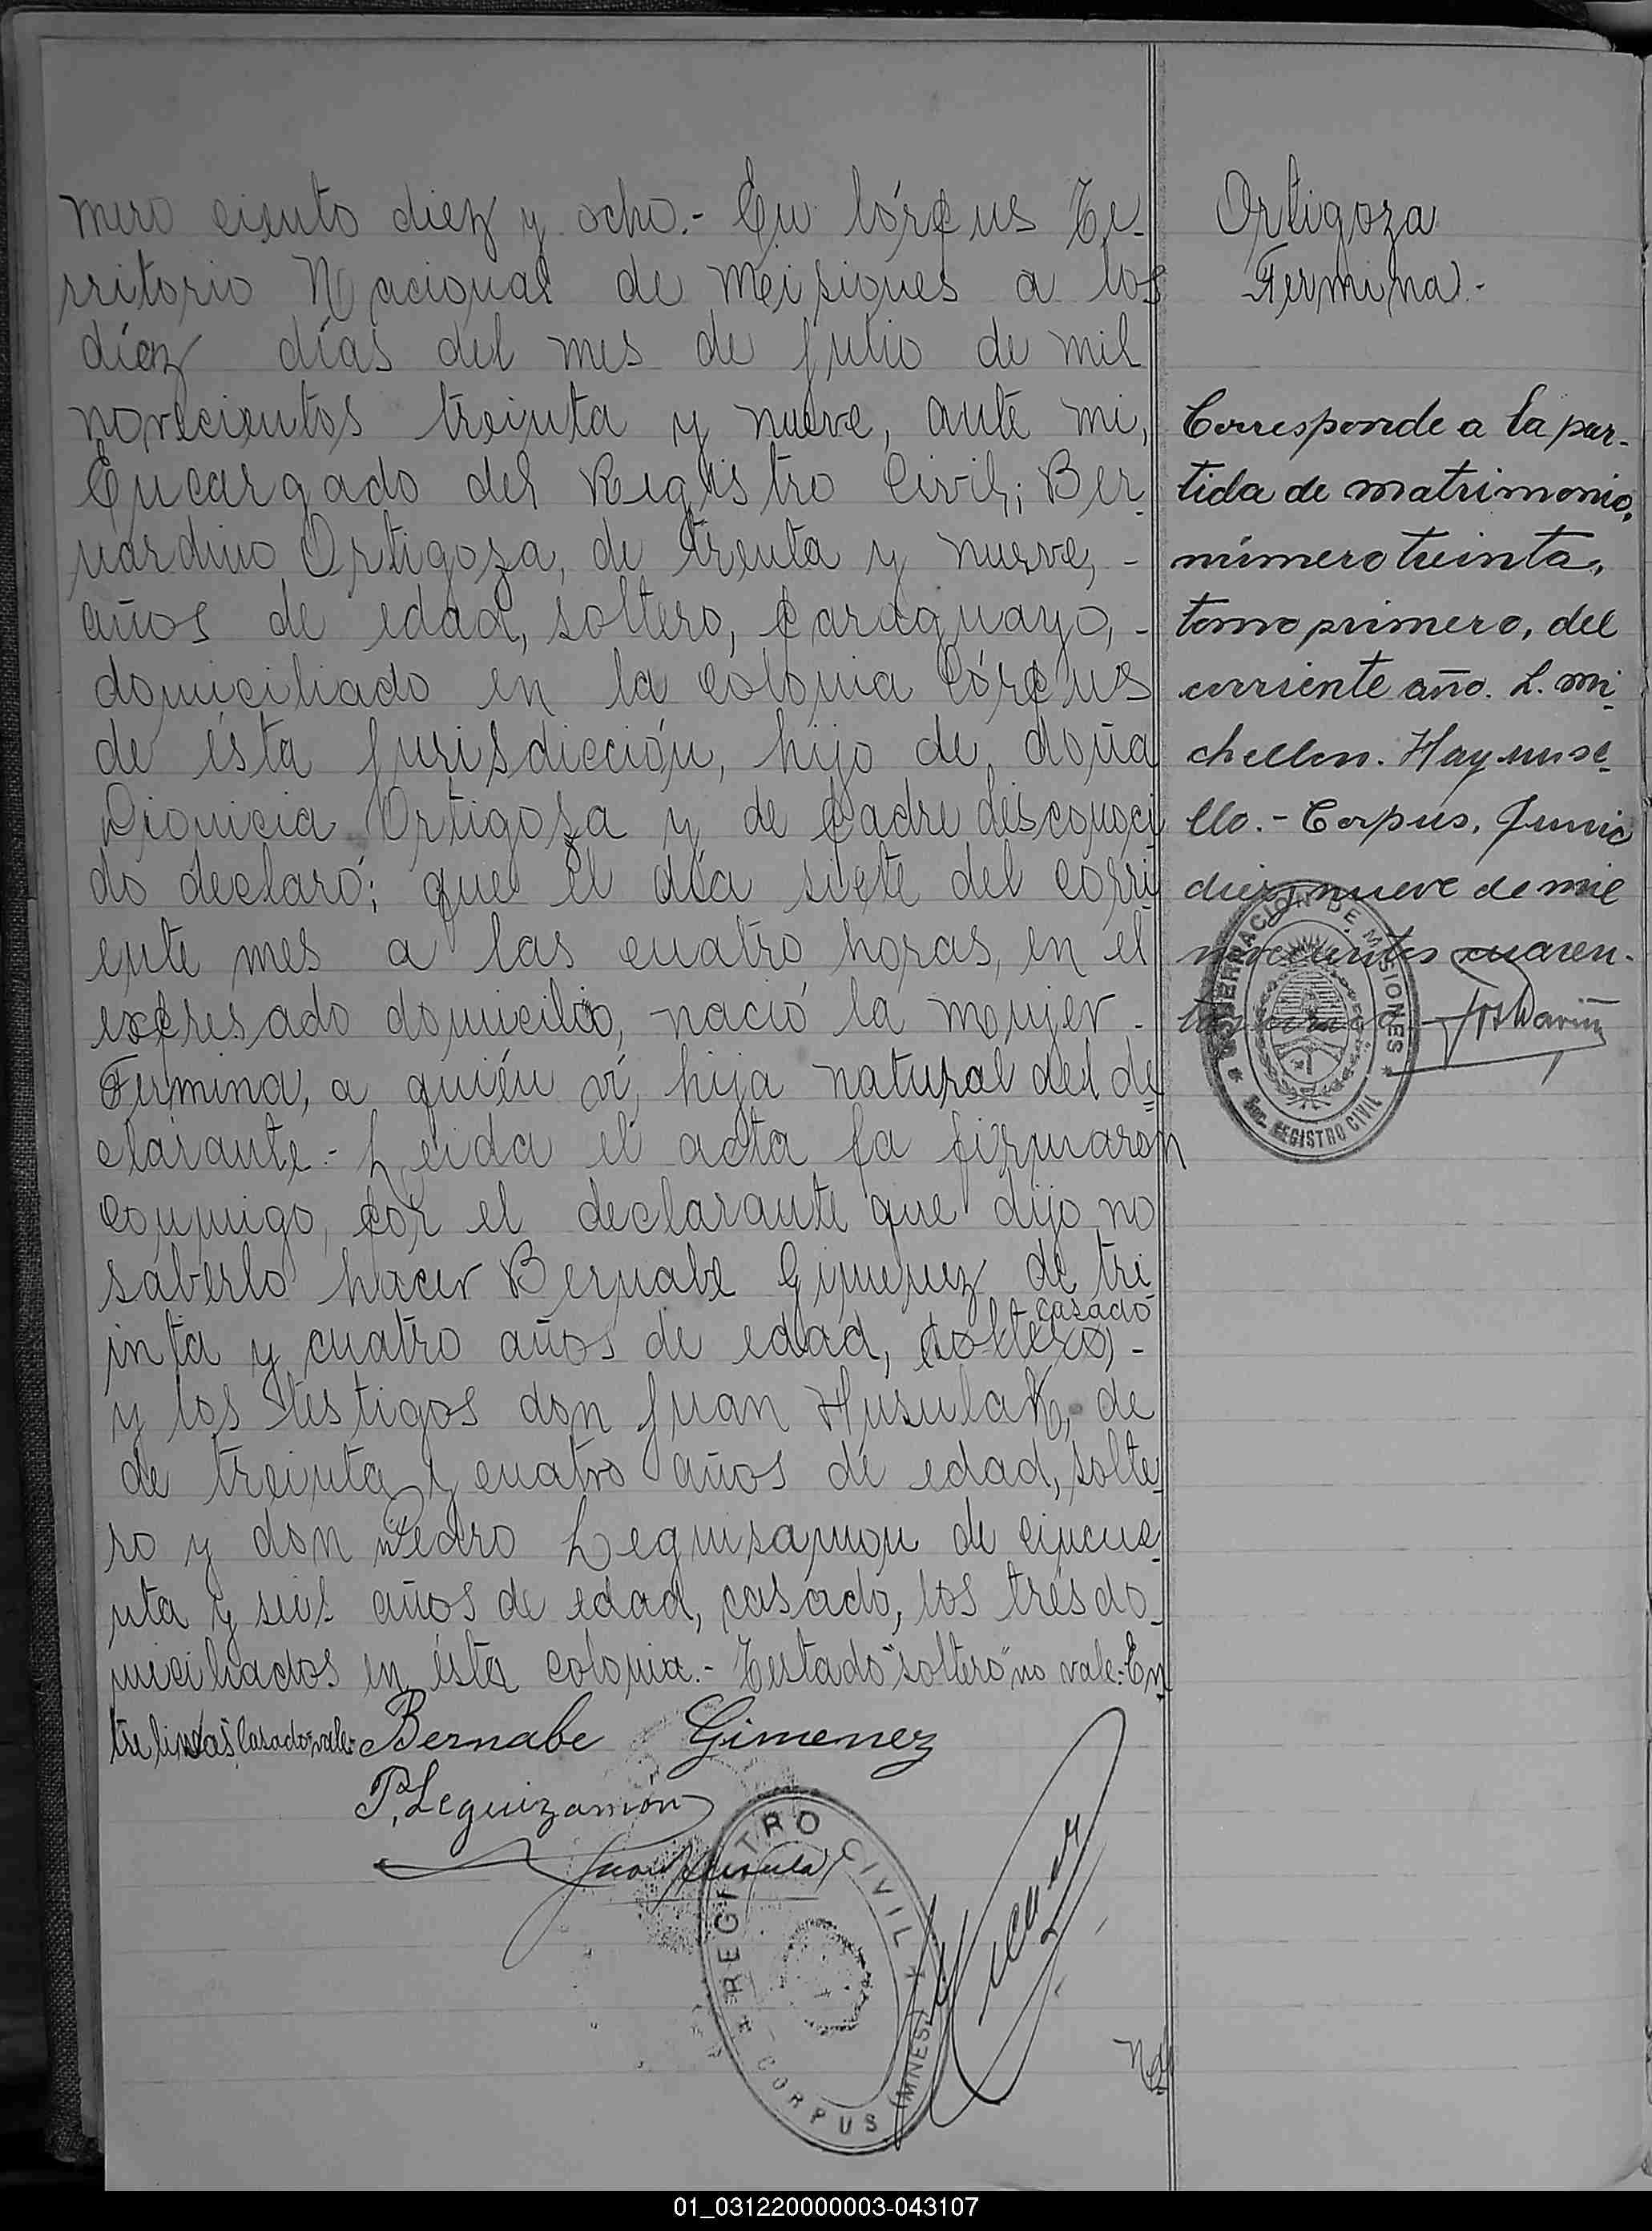 mero ciento diez y ocho.- En Córpus Te-
rritorio Nacional de Meisiones a los
díez días del mes de Julio de mil
novecientos treinta y nueve, ante mi,
Encargado del Registro Civil; Ber-
nardino Ortigoza, de trenta y nueve, -
años de edad, soltero, Paraguayo, -
domiciliado en la colonia Córpus
de ésta Jurisdicción, hijo de doña
Dionicia Ortigoza y de Padre desconoci
do declaró: que el día siete del corri
ente mes a las cuatro horas, en el
expresado domicilio, nació la mujer -
Fermina, a quién ví, hija natural del de-
clarante.- Leida el acta la firmaron
conmigo, por el declarante que dijo no
saberlo hacer Bernabe Gimenez de tre
casado
inta y cuatro años de edad, soltero, -
y los testigos don Juan Husulak, de
de treinta y cuatro años de edad, solte-
ro y don Pedro Leguisamon de cincue-
nta y seis años de edad, casado, los tres do-
miciliados en ésta colonia.- Testado "soltero" no vale.- En
tre lineas "casado" vale.- Bernabe Gimenez
P. Leguizamón
Juan Husulak
REGISTRO CIVIL
CORPUS (MNES)
Ortigoza
Fermina.-
Corresponde a la par-
tida de matrimonio,
número treinta,
tomo primero, del
corriente año. L. Mi-
chellon. Hay un se-
llo.- Corpus, Junio
diez nueve de mil
novecientos cuaren-
GOBERNACION DE MISIONES
REGISTRO CIVIL
01_031220000003-043107